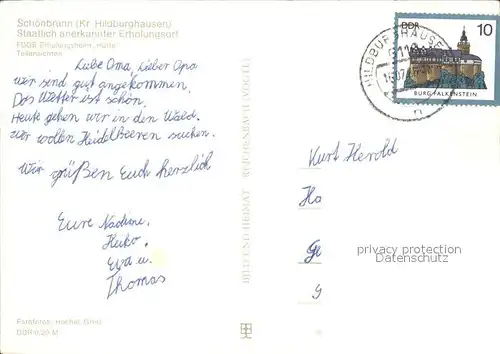 Schönbrunn (Kr. Hildburghausen)
Staatlich anerkannter Erholungsort
FDGB-Erholungsheim
Teilansichten
Liebe Oma, Lieber Opa
wir sind gut angekommen.
Das Wetter ist schön.
Heute gehen wir in den Wald.
wir wollen Heidelbeeren suchen.
Wir grüßen Euch herzlich
Eure Nadine,
Heiko,
Eva u.
Thomas
BILD UND HEIMAT REICHENBACH (VOGTL)
HILDBURGHAUSEN
DDR
10
BURG FALKENSTEIN
Kurt Herold
Ho
Ge
g
privacy protection
Datenschutz